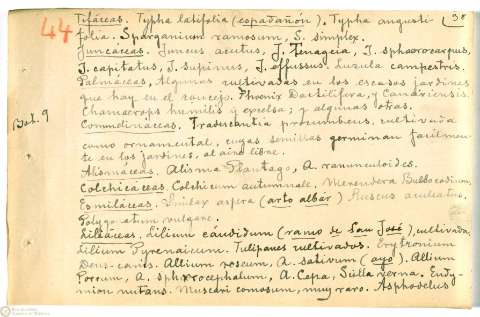 44
38
Bot. 9
"
Tifáceas. Typha latifolia (espadañón). Typha angusti-
folia. Sparganium ramosum, S. simplex.
Juncáceas. Juncus acutus, J. Tenageia, J. sphaerocarpus,
J. capitatus, J. supinus, J. effussus. Luzula campestris.
Palmáceas, Algunas cultivadas en los escasos jardines
que hay en el concejo. Phoenix Dactilifera, y Canariensis.
Chamaerops humilis y excelsa; y algunas otras.
Commelináceas. Tradescantia procumbeus, cultivada
como ornamental, cuyas semillas germinan facilmen-
te en los jardines, al aire libre.
Alismáceas. Alisma Plantago, A. ranunculoides.
Colchicáceas. Colchicum autumnale. Merendera Bulbocodium.
Esmiláceas. Smilax aspera (arto albár) Ruscus aculeatus.
Polygonatum vulgare.
Liliáceas. Lilium cándidum (ramo de San José), cultivada.
Lilium Pyrenaicum. Tulipanes cultivados. Erytronium
Dens-canis. Allium roseum, A. sativium (ayo). Allium
Porrum, A. sphxrocephalum, A. Cepa, Scilla verna. Endy-
mion nutans. Muscari comosum, muy raro. Asphodelus